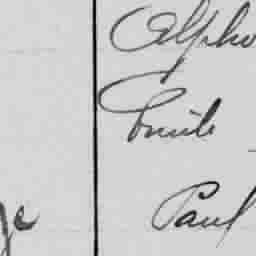 Alpho
Emile
Paul